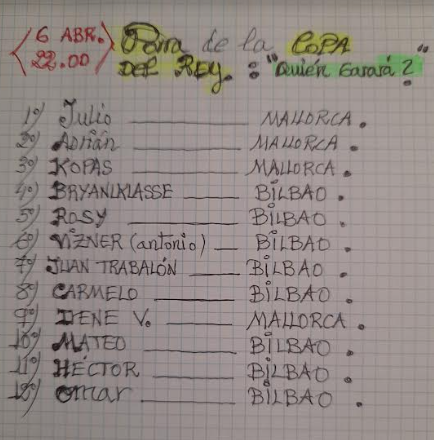 6 ABR. Porra de la COPA
22.00 DEL REY. : "Quién Ganará?"
1º) Julio MALLORCA.
2º) Adrián MALLORCA.
3º) KOPAS MALLORCA.
4º) BRYANKLASSE BILBAO.
5º) ROSY BILBAO.
6º) VIZNER (antonio) BILBAO.
7º) JUAN TRABALÓN BILBAO.
8º) CARMELO BILBAO.
9º) IDENE V. MALLORCA.
10º) MATEO BILBAO.
11º) HÉCTOR BILBAO.
12º) omar BILBAO.